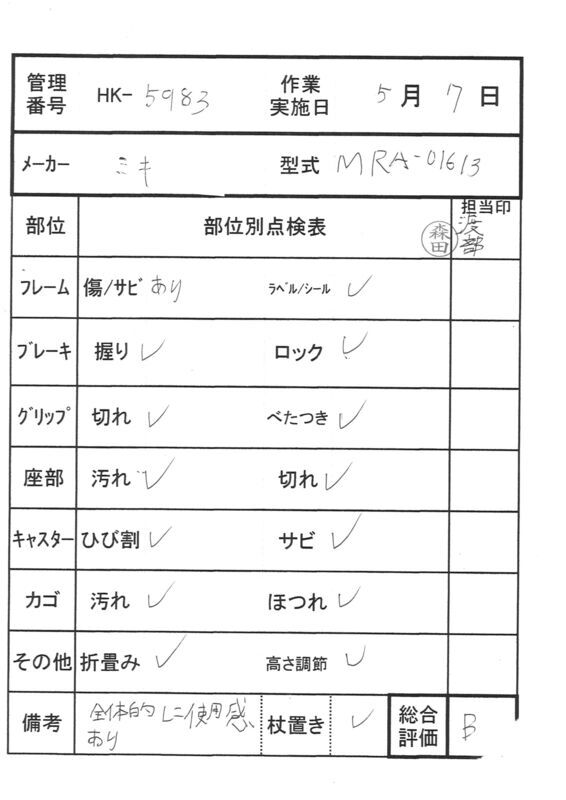 管理番号 HK-5983 作業実施日 5月7日
メーカー ミキ 型式 MRA-01613
部位 部位別点検表 担当印
森田 渡部
フレーム 傷/サビ あり ラベル/シール ✓
ブレーキ 握り ✓ ロック ✓
グリップ 切れ ✓ べたつき ✓
座部 汚れ ✓ 切れ ✓
キャスター ひび割 ✓ サビ ✓
カゴ 汚れ ✓ ほつれ ✓
その他 折畳み ✓ 高さ調節 ✓
備考 全体的に使用感あり 杖置き ✓ 総合評価 B